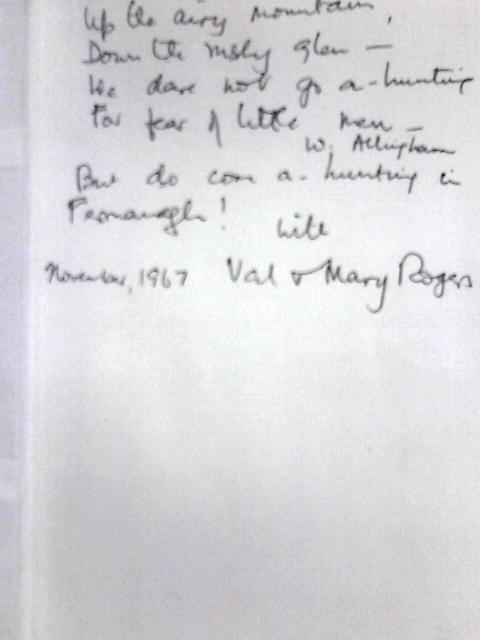 Up the airy mountain,
Down the rushy glen —
We dare not go a-hunting
For fear of little men —
W. Allingham
But do come a-hunting in
Fermanagh!
with
November, 1967 Val & Mary Rogers